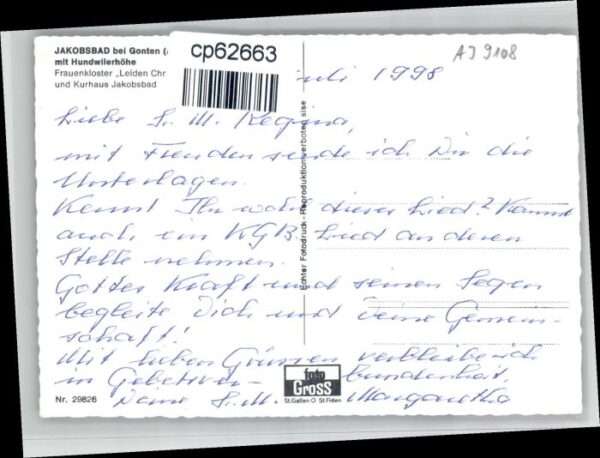 JAKOBSBAD bei Gonten (
mit Hundwilerhöhe
Frauenkloster „Leiden Chr
und Kurhaus Jakobsbad
cp62663
AJ 9108
Juli 1998
Liebe Sr. M. Regina,
mit Freuden sende ich Dir die
Unterlagen.
Kennt Ihr wohl dieses Lied? Kannst
auch ein KGB Lied an deren
Stelle nehmen.
Gottes Kraft und seinen Segen
begleite Dich und Deine Gemein-
schaft!
Mit lieben Grüssen verbleibe ich
in Gebetsver- bundenheit,
Deine Sr. M. Margaritha
Echter Fotodruck - Reproduktion verboten
foto
Gross
St. Gallen O St. Fiden
Nr. 29826